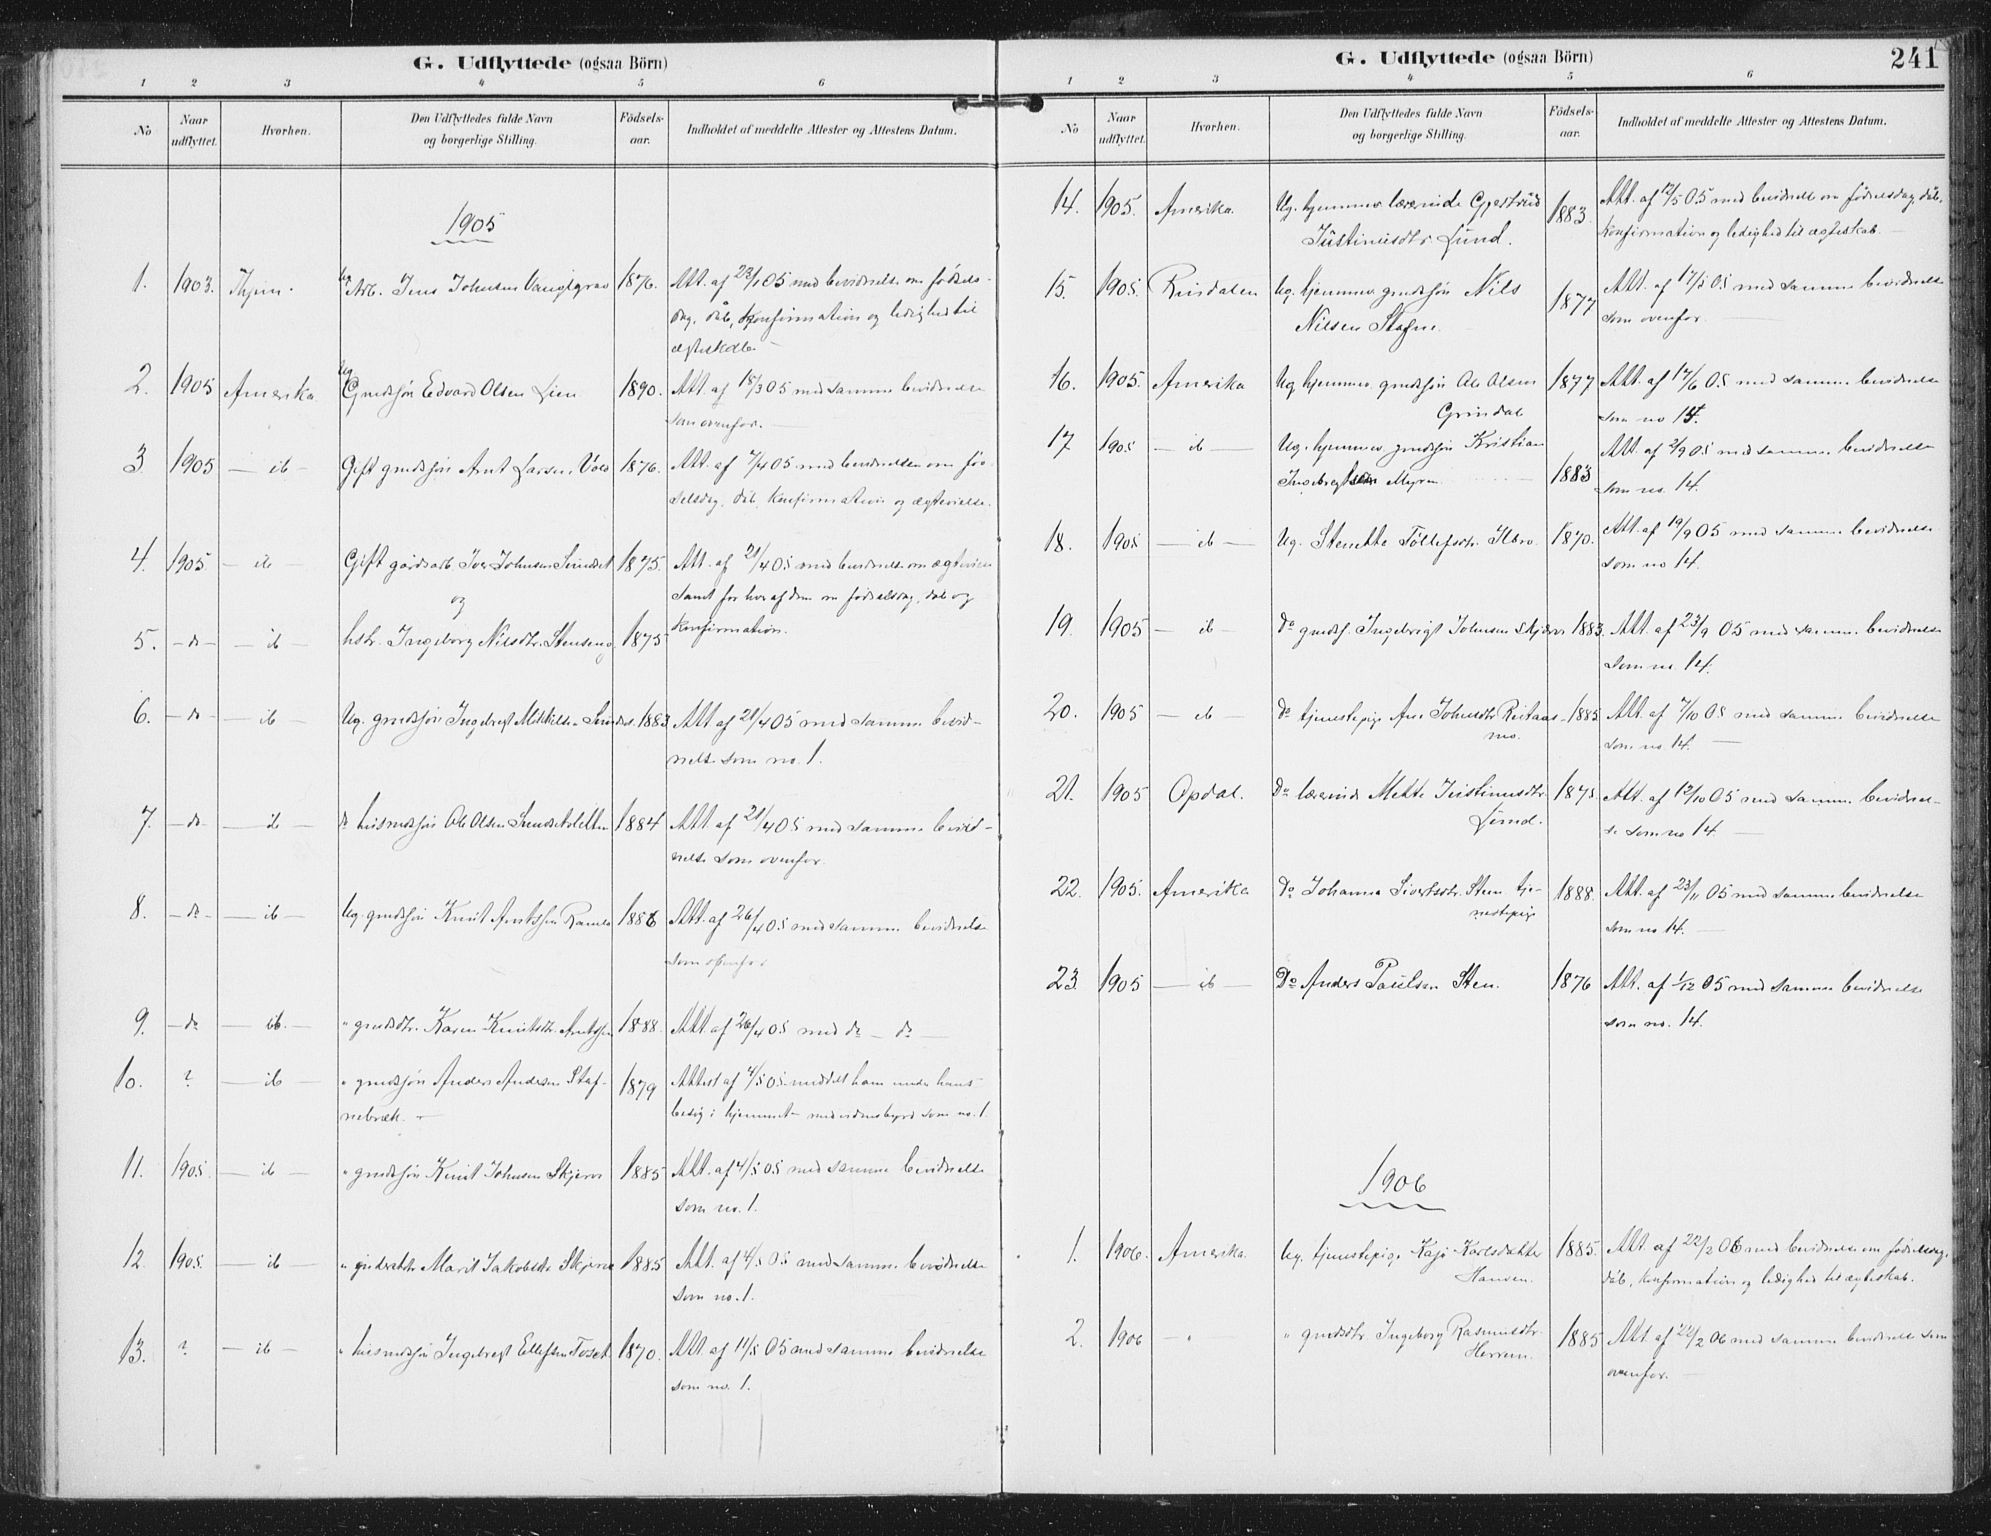 G. Udflyttede (ogsaa Börn)
1 2 3 4 5 6
No
Naar udflyttet.
Hvorhen.
Den Udflyttedes fulde Navn og borgerlige Stilling.
Födsels-aar.
Indholdet af meddelte Attester og Attestens Datum.
1905
1. 1903. Ug. Arb. Jens Johnsen 1876. Att. af 23/1 05 med bevidnelse om födsels-
dag, dåb, konfirmation og ledighed til
ægteskab
2. 1905 Amerika Ug Gmdsön Edvard Olsen Lien 1890. Att. af 18/3 05 med samme bevidnelse
som ovenfor.
3 1905 — ib — Gift gmdsjön Arnt Larsen Vold 1876. Att. af 7/4 05 med bevidnelse om fød-
selsdag, dåb, konfirmation og ægtevielse.
4. 1905 — ib — Gift gårdarb Iver Johnsen 1875. Att. af 21/4 05 med bevidnelse om ægtevielse
og samt for hver af dem om fødselsdag, dåb og
5. — do — — ib — hstr. Ingeborg Nilsdtr. 1875 konfirmation.
6. — do — — ib — Ug. gmdsjön Ingebregt Mikkelsen 1883 Att af 21/4 05 med samme bevid-
nelse som no. 1.
7. — do — — ib — do husmdsjön Ole Olsen 1884 Att. af 21/4 05 med samme bevid-
nelse som ovenfor.
8. — do — — ib — Ug. gmdsjön Knut Arntsen 1886 Att. af 26/4 05 med samme bevidnelse
som ovenfor
9. — do — ib. — " gmdsdtr. Karen Knutsdtr. 1888. Att af 26/4 05 med do — do —
10. ? — ib — " gmdsjön Anders Andersen Staf- 1879 Attest af 4/5 05 meddelt ham under hans
nebræk. — besøg i hjemmet — med vidnesbyrd som no. 1.
11. 1905. — ib — " gmdsjön Knut Johnsen Skjerve 1885 Att. af 4/5 05 med samme bevidnelse
som no. 1.
12. 1905. — ib — " Marit Jakobsdtr Skjerve 1885 Att. af 4/5 05 med samme bevidnelse
som no. 1.
13. ? — ib — " husmdsjön Ingebregt Ellefsen Toset 1870. Att. af 11/5 05 med samme bevidnelse
som no. 1.
G. Udflyttede (ogsaa Börn)
241
1 2 3 4 5 6
No
Naar udflyttet.
Hvorhen.
Den Udflyttedes fulde Navn og borgerlige Stilling.
Födsels-aar.
Indholdet af meddelte Attester og Attestens Datum.
14. 1905. Amerika. Ug. hjemmev lærerinde Gjertrud 1883. Att. af 12/5 05 med bevidnelse om fødselsdag, dåb,
Justinusdtr Lund. konfirmation og ledighed til ægteskab. —
15. 1905. Risdalen Ug. hjemmev gmdsjön Nils 1877 Att. af 17/5 05 med samme bevidnelse
Nilsen som ovenfor. —
16. 1905. Amerika Ug hjemmev gmdsjön Ole Olsen 1877 Att. af 17/6 05 med samme bevidnelse
Grindal som no 14.
17 1905 — ib — Ug. hjemmev gmdsjön Kristian Att. af 2/9 05 med samme bevidnelse
Ingebregtsen Myren 1883 som no. 14.
18. 1905 — ib — Ug. 1870. Att. af 19/9 05 med samme bevidnelse
som no 14.
19. 1905 — ib — do gmds. Ingebrigt Johnsen Skjerve 1883. Att. af 23/9 05 med samme bevidnelse
som no. 14.
20. 1905 — ib — do tjenestepige Ane Johnsdtr Reitaas- 1885 Att. af 7/10 05 med samme bevidnelse
mo. som no 14. —
21. 1905 Opdal. Do lærerinde Mette Justinusdtr. 1875. Att. af 12/10 05 med samme bevidnel-
Lund. se som no 14. —
22. 1905. Amerika Do Johanna Sivertsdtr. Sten tje- 1888. Att. af 23/11 05 med samme bevidnelse
nestepige som no 14. —
23. 1905 — ib — Do Anders Paulsen Sten. 1876 Att. af 1/12 05 med samme bevidnelse
som no. 14.
1906
1. 1906. Amerika. Ug. tjenestepige Kaja Karlsdatter 1885. Att. af 22/2 06 med bevidnelse om fødselsdag,
Hansen. dåb, konfirmation og ledighed til ægteskab.
2. 1906 — " " gmdsdtr Ingeborg Rasmusdtr. 1885 Att. af 22/2 06 med samme bevidnelse som
Herrem. ovenfor. —